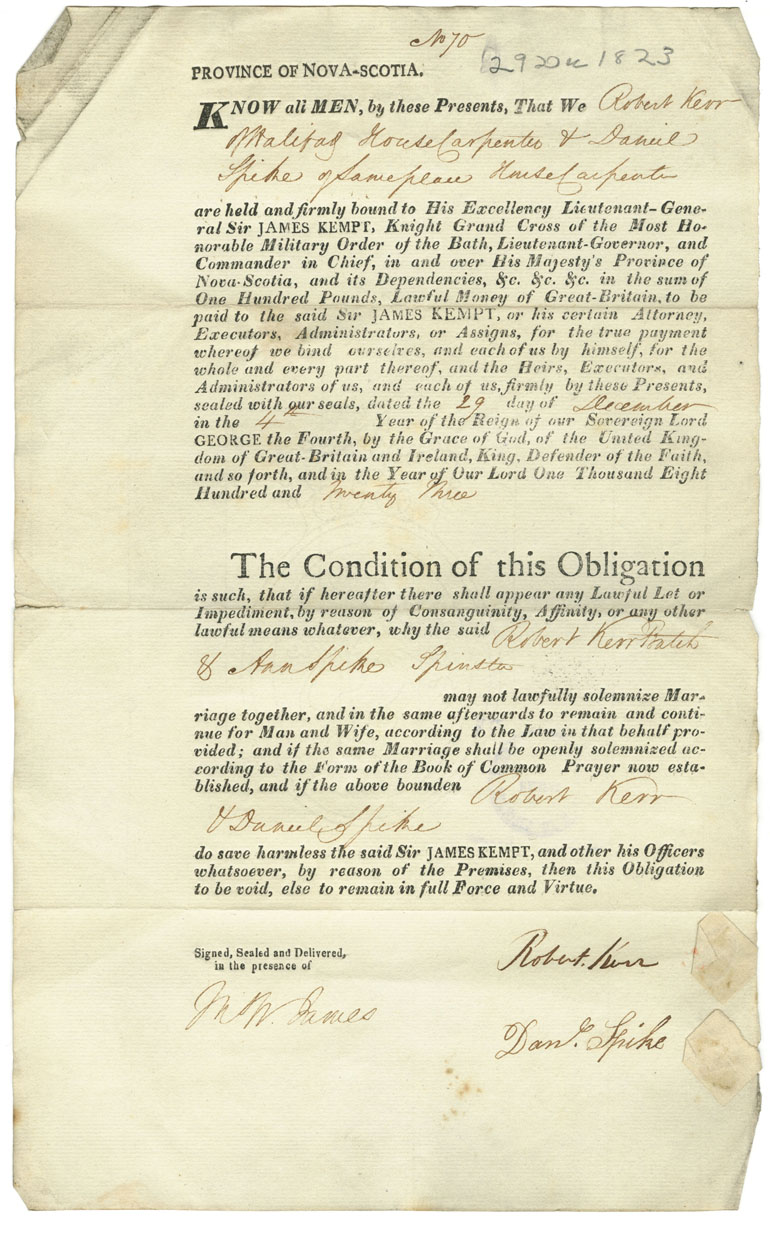 No 70
29 Dec 1823
PROVINCE OF NOVA-SCOTIA.
KNOW all MEN, by these Presents, That We Robert Kerr
of Halifax House Carpenter & Daniel
Spike of Same place House Carpenter
are held and firmly bound to His Excellency Lieutenant-Gene-
ral Sir JAMES KEMPT, Knight Grand Cross of the Most Ho-
norable Military Order of the Bath, Lieutenant-Governor, and
Commander in Chief, in and over His Majesty's Province of
Nova-Scotia, and its Dependencies, &c. &c. &c. in the sum of
One Hundred Pounds, Lawful Money of Great-Britain, to be
paid to the said Sir JAMES KEMPT, or his certain Attorney,
Executors, Administrators, or Assigns, for the true payment
whereof we bind ourselves, and each of us by himself, for the
whole and every part thereof, and the Heirs, Executors, and
Administrators of us, and each of us, firmly by these Presents,
sealed with our seals, dated the 29 day of December
in the 4th Year of the Reign of our Sovereign Lord
GEORGE the Fourth, by the Grace of God, of the United King-
dom of Great-Britain and Ireland, King, Defender of the Faith,
and so forth, and in the Year of Our Lord One Thousand Eight
Hundred and Twenty Three
The Condition of this Obligation
is such, that if hereafter there shall appear any Lawful Let or
Impediment, by reason of Consanguinity, Affinity, or any other
lawful means whatever, why the said Robert Kerr Batch
& Ann Spike Spinster
may not lawfully solemnize Mar-
riage together, and in the same afterwards to remain and conti-
nue for Man and Wife, according to the Law in that behalf pro-
vided; and if the same Marriage shall be openly solemnized ac-
cording to the Form of the Book of Common Prayer now esta-
blished, and if the above bounden Robert Kerr
& Daniel Spike
do save harmless the said Sir JAMES KEMPT, and other his Officers
whatsoever, by reason of the Premises, then this Obligation
to be void, else to remain in full Force and Virtue.
Signed, Sealed and Delivered,
in the presence of
Robert Kerr
James
Danl. Spike